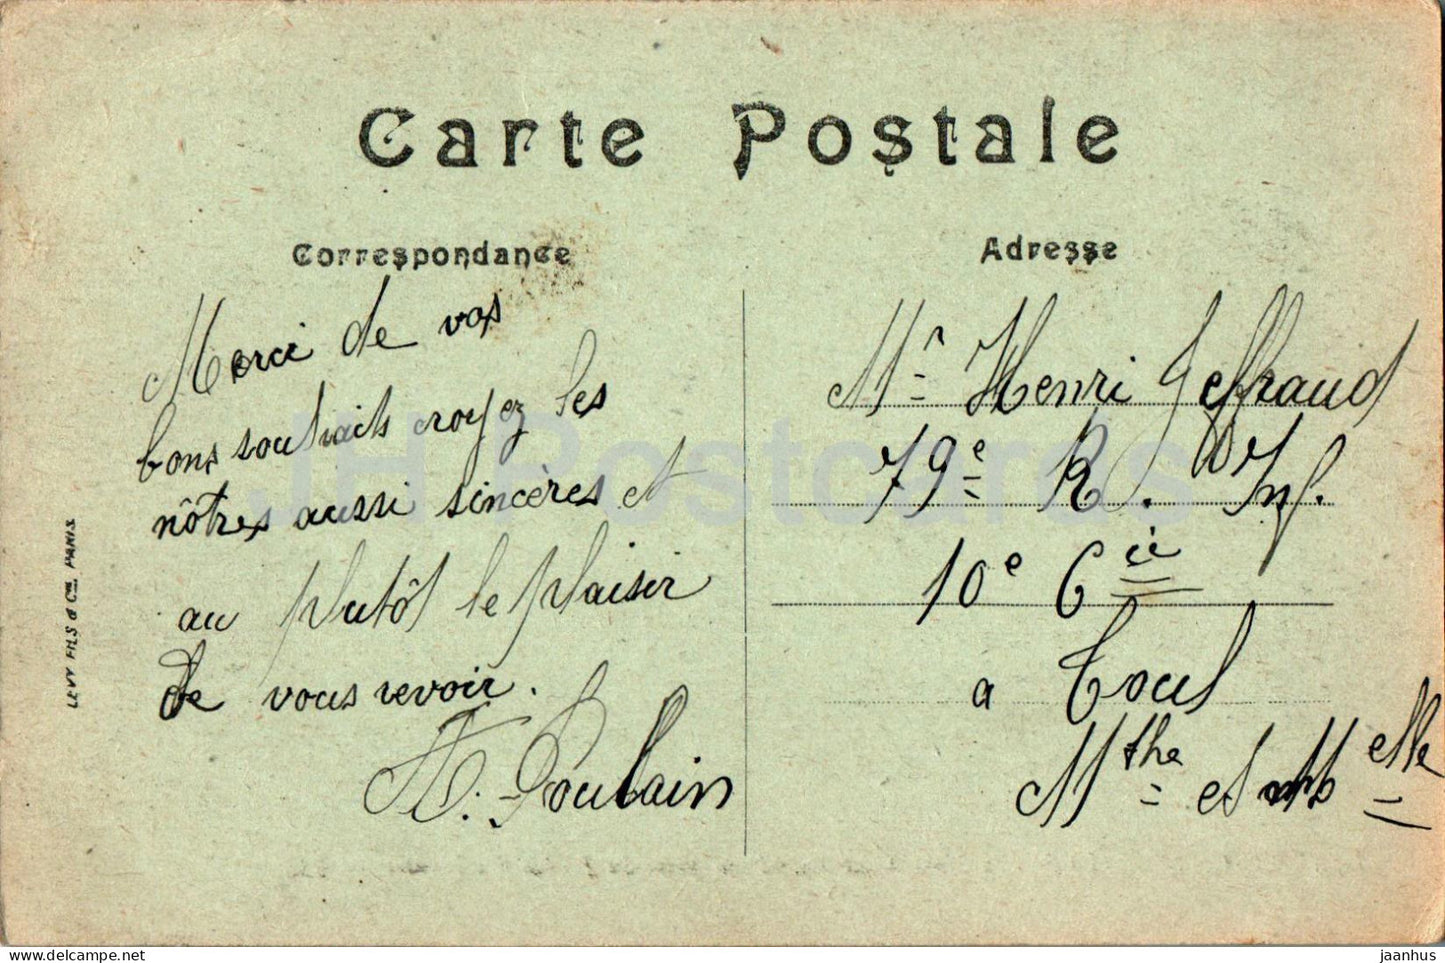 Carte Postale
Correspondance
Merci de vos
bons souhaits croyez les
nôtres aussi sincères et
au plutôt le plaisir
de vous revoir.
H. Poulain
Adresse
Mr Henri Jeffraud
79e R. d'Inf.
10e Cie
a Toul
Mthe et Melle
LEVY FILS & Cie. PARIS.
JH Postcards
delcampe.net
jaanhus